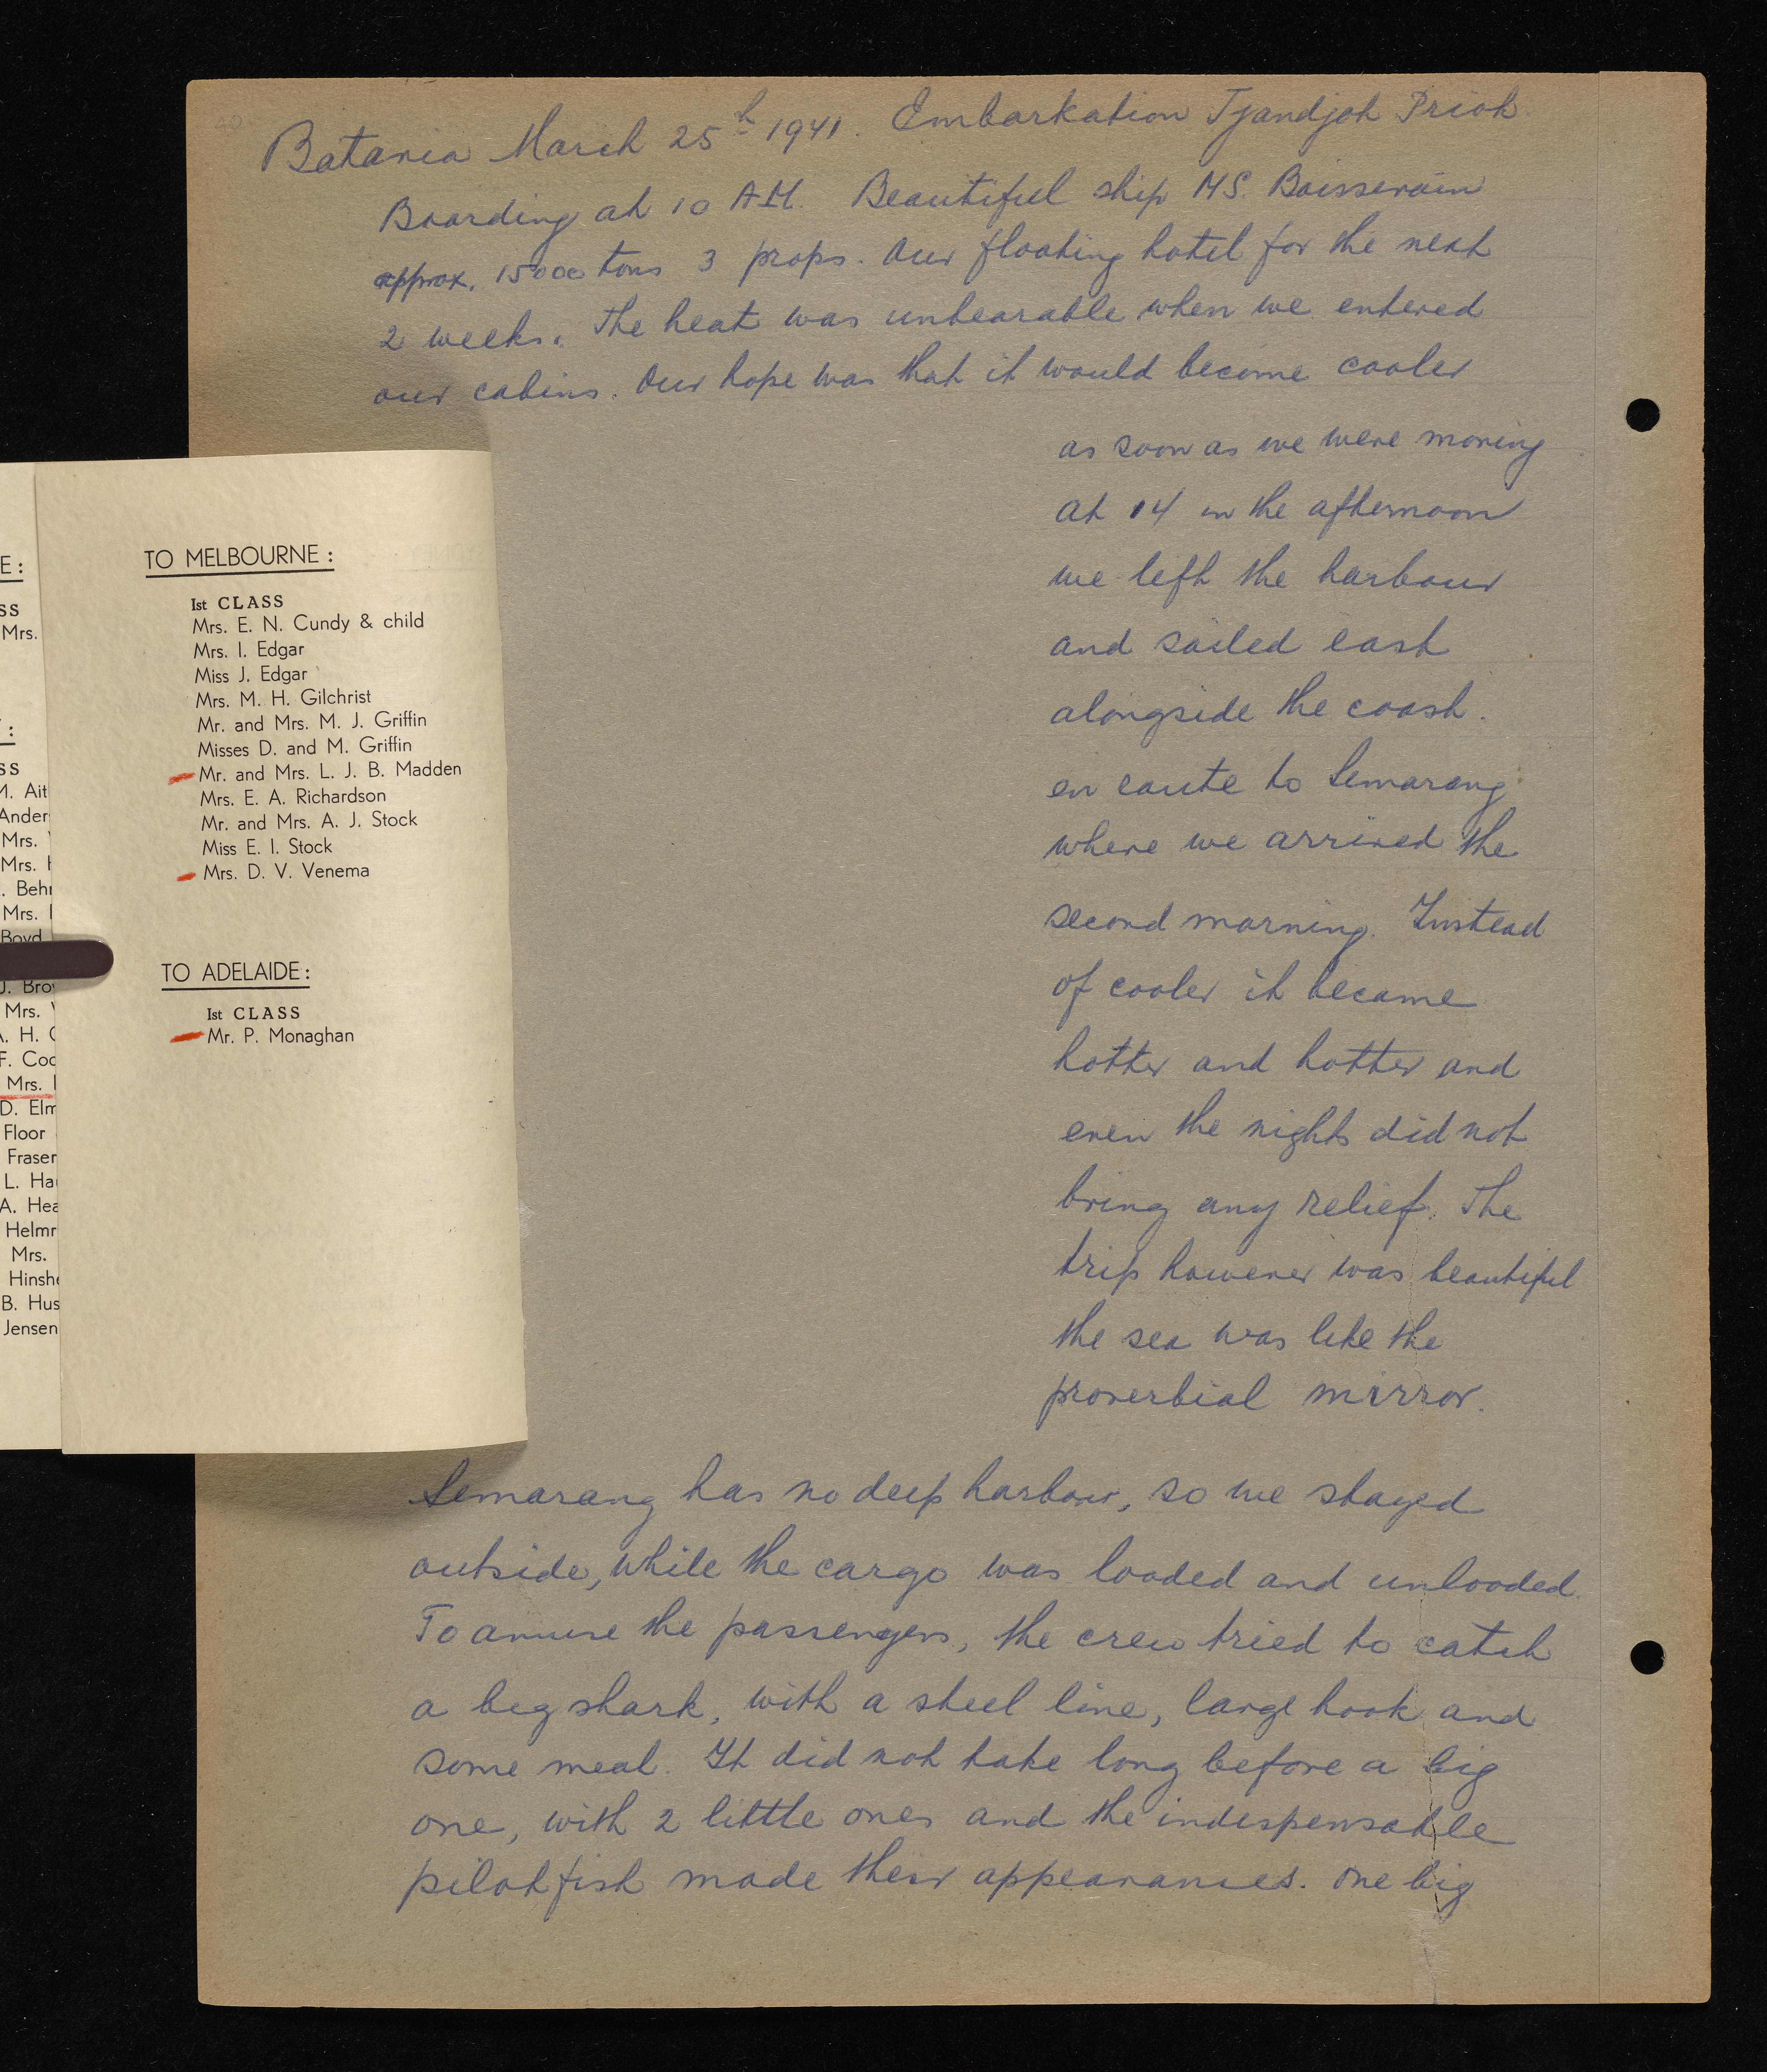 Batavia March 25th 1941. Embarkation Tjandjoh Prioh
Boarding at 10 A.M. Beautiful ship M.S. Boissevain
approx. 15000 tons 3 props. Our floating hotel for the next
2 weeks. The heat was unbearable when we entered
our cabins. Our hope was that it would become cooler
as soon as we were moving
at 14 in the afternoon
we left the harbour
and sailed east
alongside the coast.
en route to Semarang
where we arrived the
second morning. Instead
of cooler it became
hotter and hotter and
even the nights did not
bring any relief. The
trip however was beautiful
the sea was like the
proverbial mirror.
Semarang has no deep harbour, so we stayed
outside, while the cargo was loaded and unloaded.
To amuse the passengers, the crew tried to catch
a big shark, with a steel line, large hook and
some meat. It did not take long before a big
one, with 2 little ones and the indespensable
pilotfish made their appearances. One big
E:
SS
Mrs.
:
SS
M. Ait
Ander
Mrs.
Mrs. H
. Behr
Mrs.
Boyd
J. Bro
Mrs.
A. H. C
F. Coc
Mrs.
D. Elm
Floor
Fraser
L. Ha
A. Hea
Helmr
Mrs.
Hinshe
B. Hus
Jensen
TO MELBOURNE:
1st CLASS
Mrs. E. N. Cundy & child
Mrs. I. Edgar
Miss J. Edgar
Mrs. M. H. Gilchrist
Mr. and Mrs. M. J. Griffin
Misses D. and M. Griffin
Mr. and Mrs. L. J. B. Madden
Mrs. E. A. Richardson
Mr. and Mrs. A. J. Stock
Miss E. I. Stock
Mrs. D. V. Venema
TO ADELAIDE:
1st CLASS
Mr. P. Monaghan